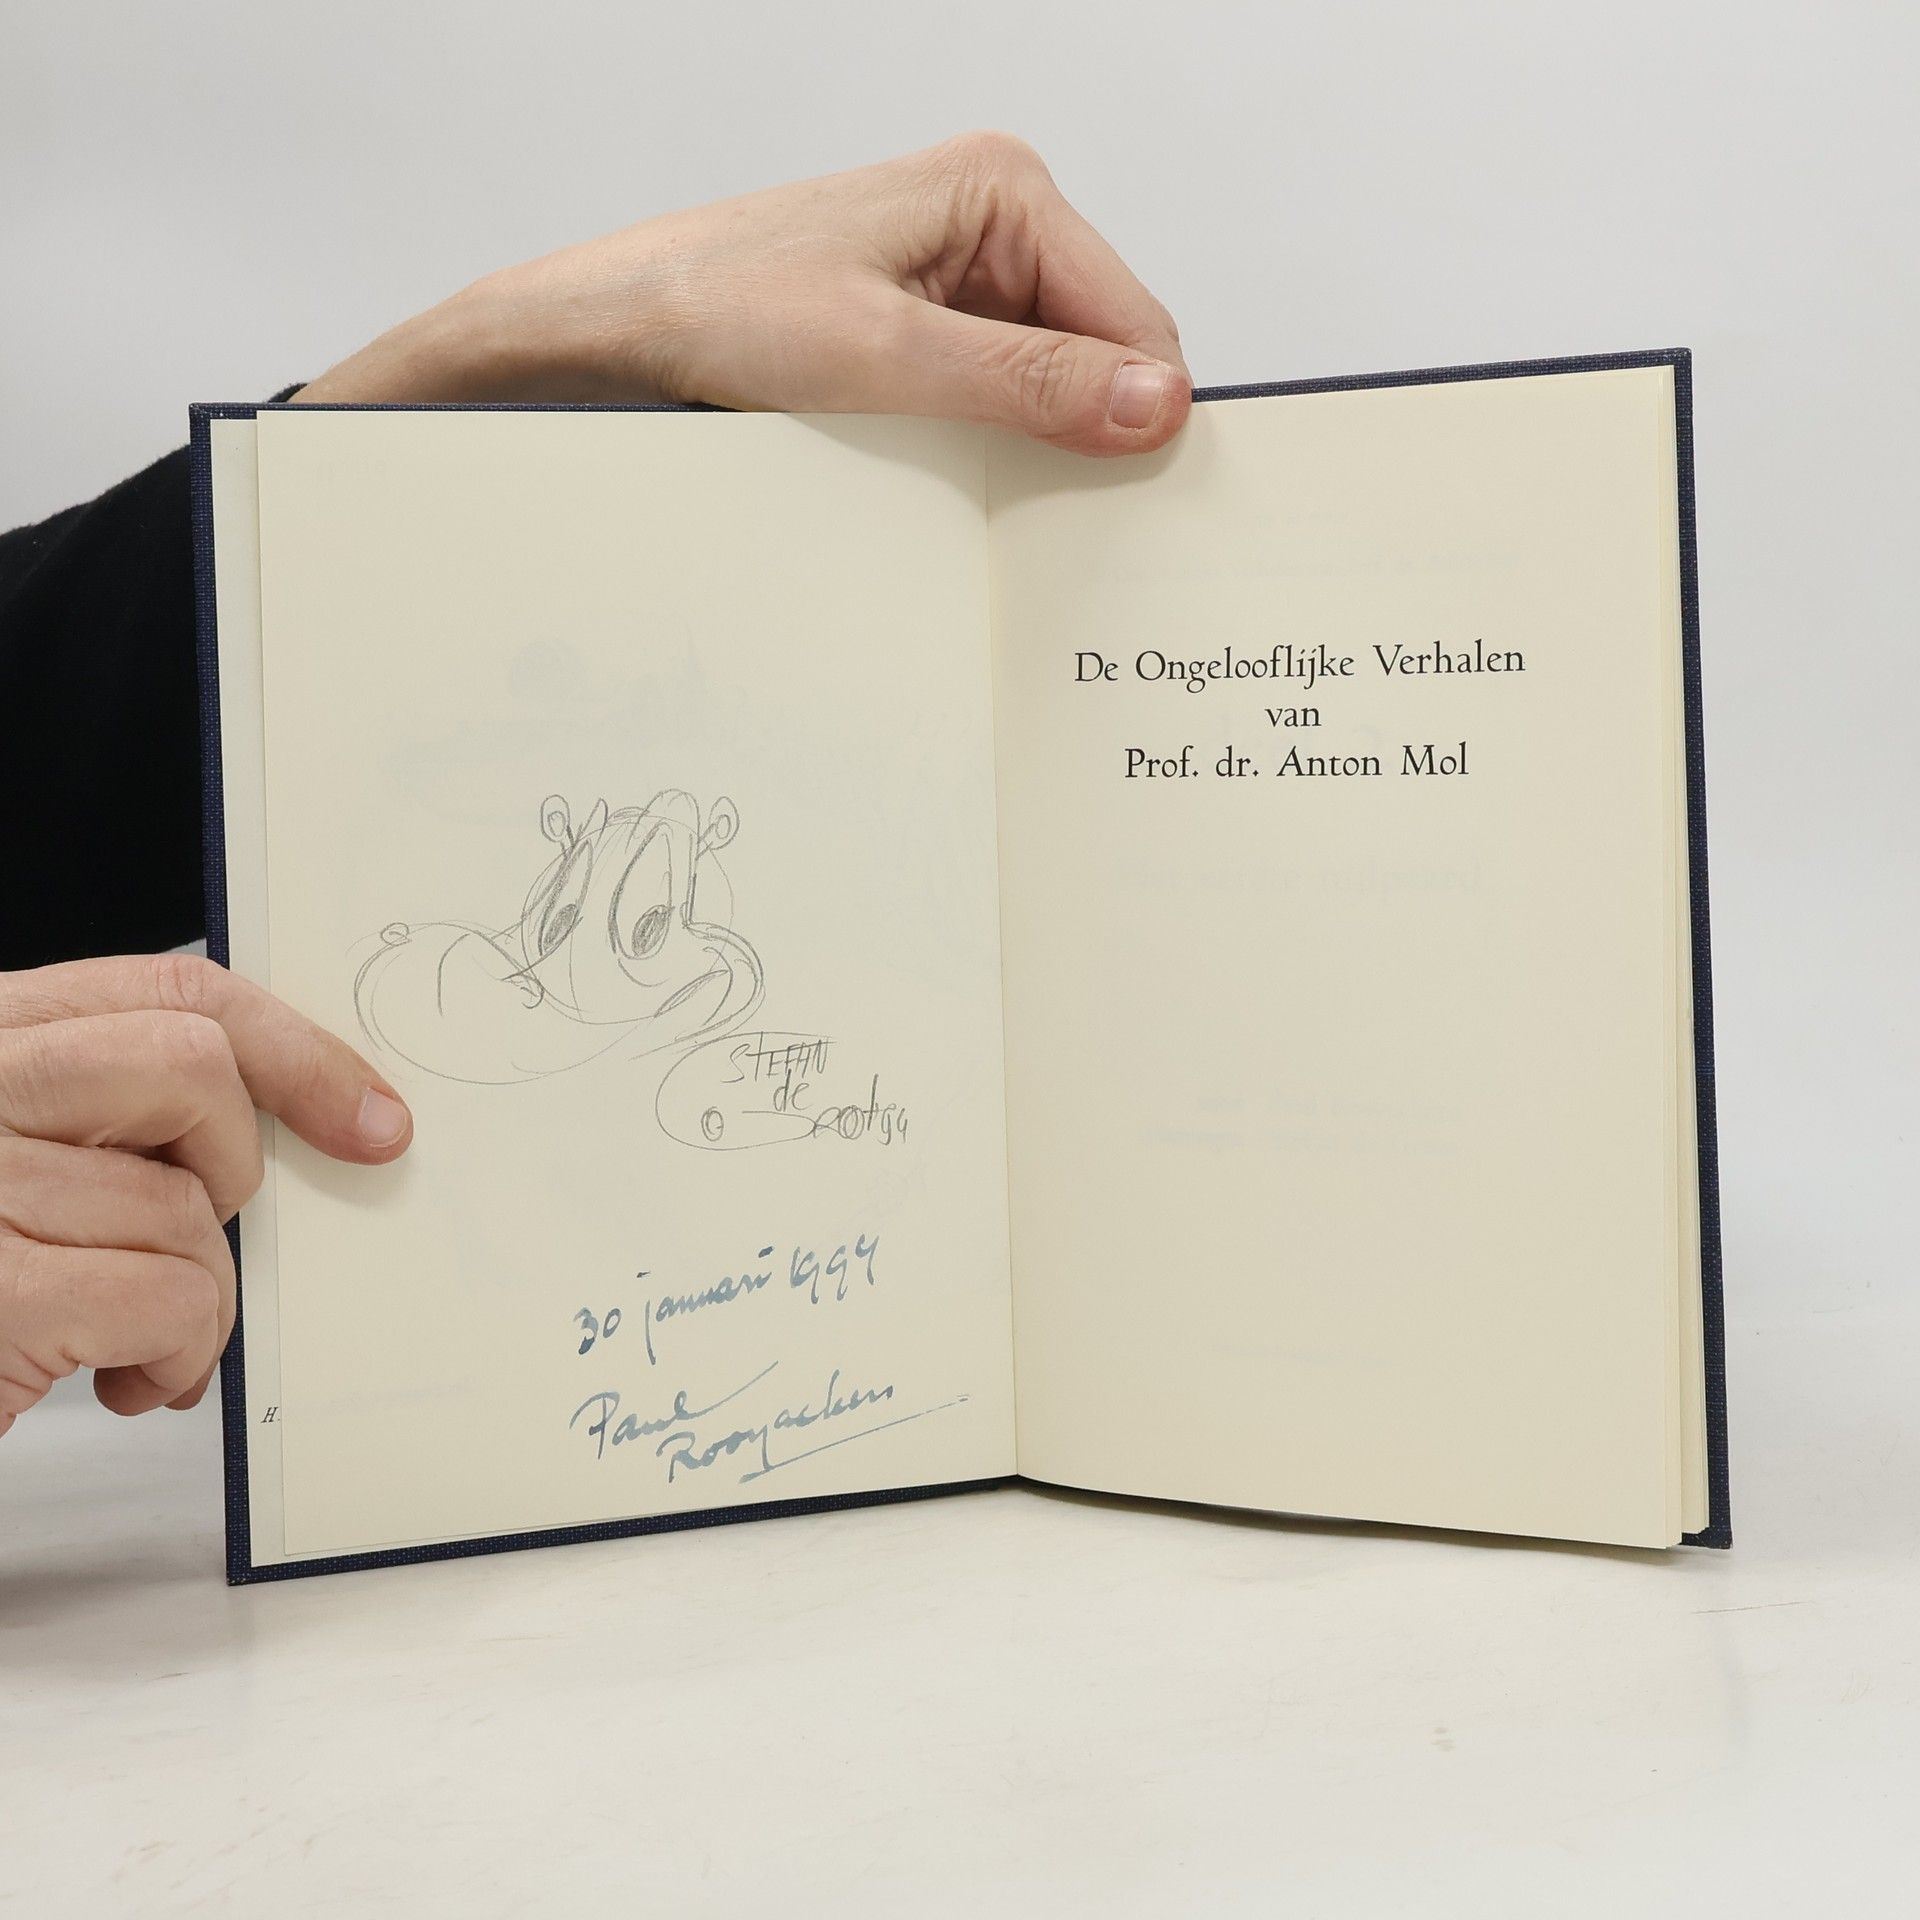 STEFAN
de
Groot '94
30 januari 1994
Paul
Rooyackers
H.
De Ongelooflijke Verhalen
van
Prof. dr. Anton Mol